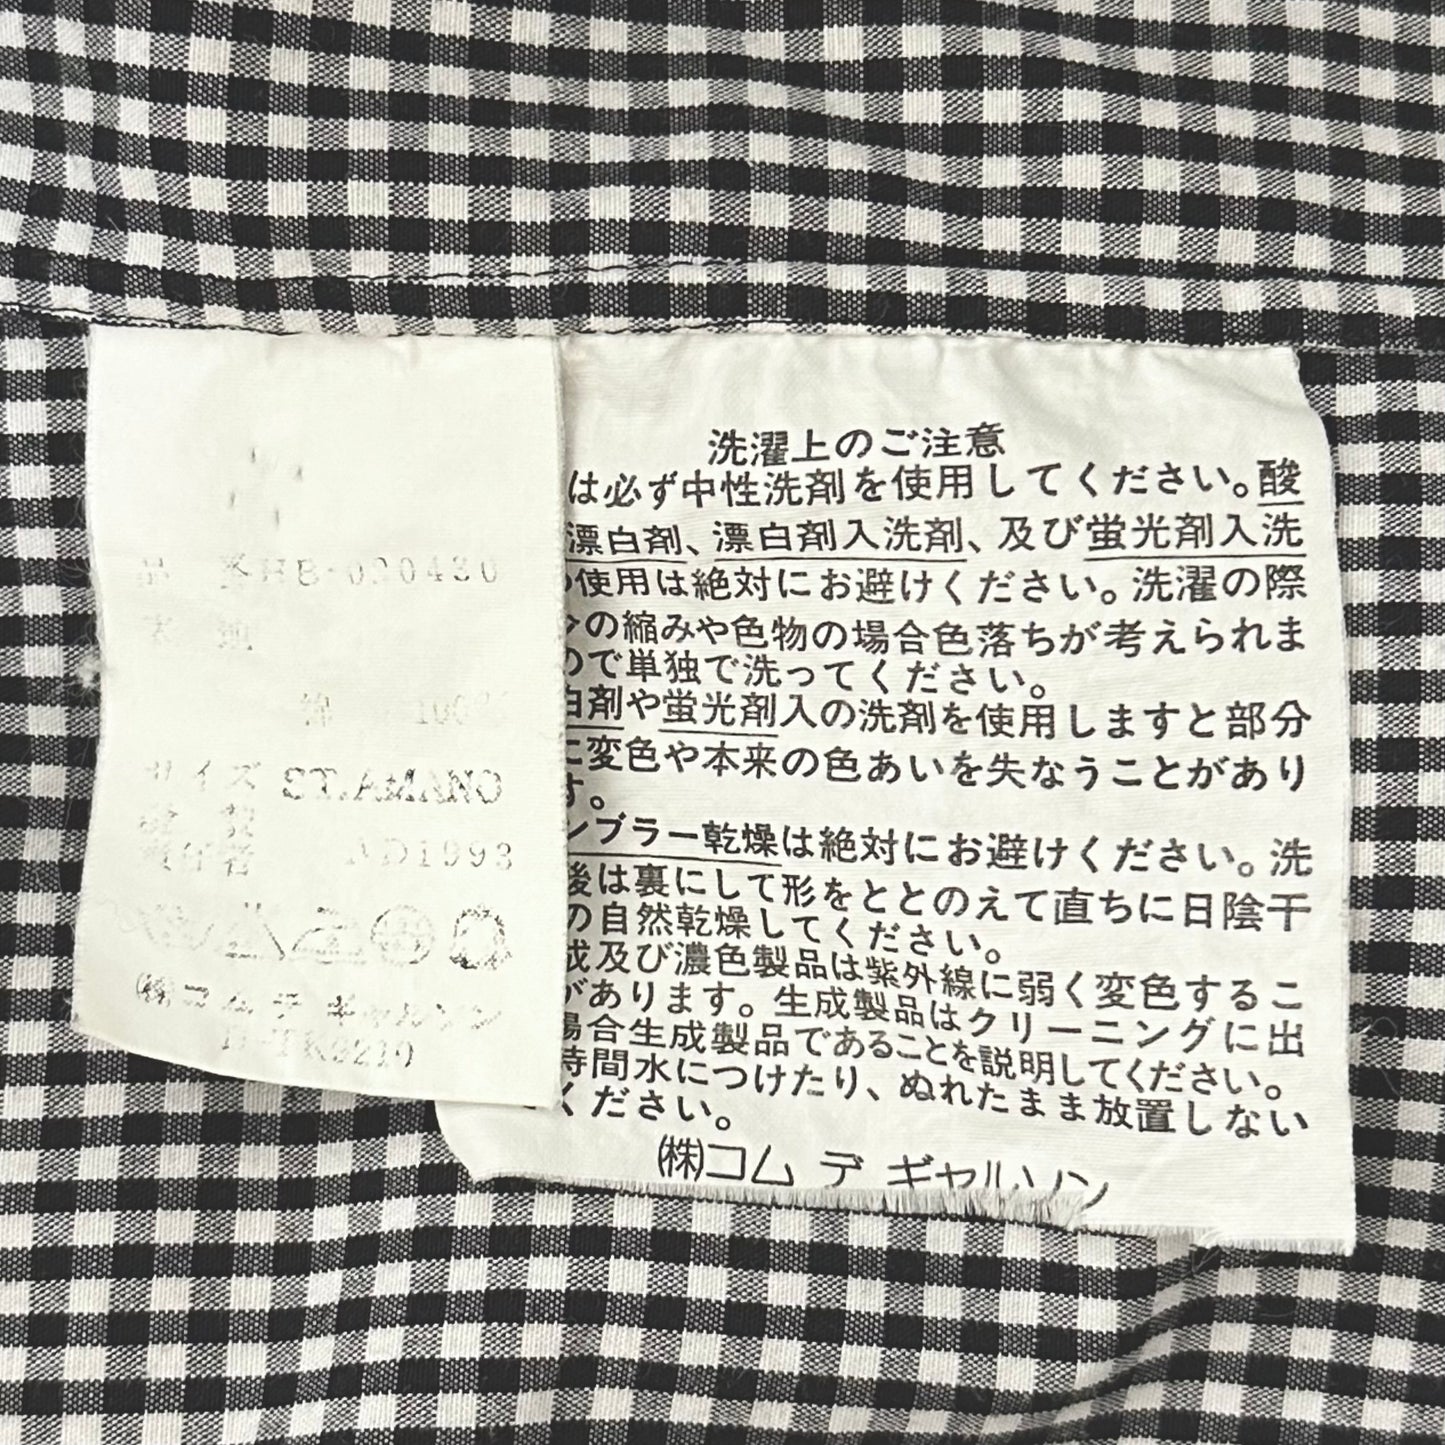 品 番HB-020430
綿 100%
サイズ
AD1993
㈱コム デ ギャルソン
洗濯上のご注意
は必ず中性洗剤を使用してください。酸
漂白剤、漂白剤入洗剤、及び蛍光剤入洗
使用は絶対にお避けください。洗濯の際
の縮みや色物の場合色落ちが考えられま
ので単独で洗ってください。
白剤や蛍光剤入の洗剤を使用しますと部分
に変色や本来の色あいを失なうことがあり
す。
ンブラー乾燥は絶対にお避けください。洗
後は裏にして形をととのえて直ちに日陰干
の自然乾燥してください。
成及び濃色製品は紫外線に弱く変色するこ
があります。生成製品はクリーニングに出
場合生成製品であることを説明してください。
時間水につけたり、ぬれたまま放置しない
ください。
㈱コム デ ギャルソン